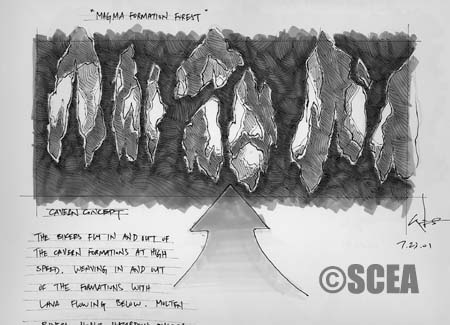 "MAGMA FORMATION FOREST"
CAVERN CONCEPT
THE BIKERS FLY IN AND OUT OF
THE CAVERN FORMATIONS AT HIGH
SPEED. WEAVING IN AND OUT
OF THE FORMATIONS WITH
LAVA FLOWING BELOW. MOLTEN
7.23.01
©SCEA